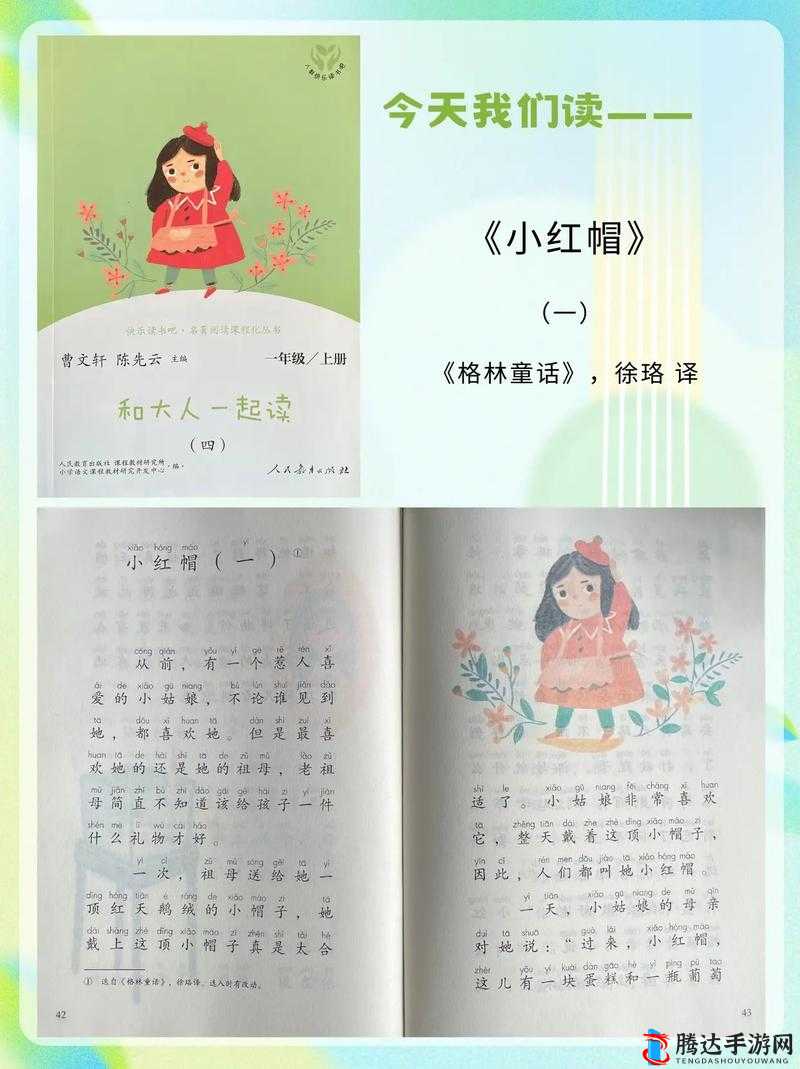 人教快乐读书吧
今天我们读——
《小红帽》
（一）
《格林童话》，徐珞 译
快乐读书吧·名著阅读课程化丛书
曹文轩 陈先云 主编 一年级/上册
和大人一起读
（四）
人民教育出版社 课程教材研究所
小学语文课程教材研究开发中心 ·编·
人民教育出版社
xiǎo hóng mào yī
小红帽（一）①
cóng qián yǒu yí gè rě rén xǐ
从前，有一个惹人喜
ài de xiǎo gū niang bú lùn shuí jiàn dào
爱的小姑娘，不论谁见到
tā dōu xǐ huan tā dàn shì zuì xǐ
她，都喜欢她。但是最喜
huan tā de hái shi tā de zǔ mǔ lǎo zǔ
欢她的还是她的祖母，老祖
mǔ jiǎn zhí bù zhī dào gāi gěi hái zi yí jiàn
母简直不知道该给孩子一件
shén me lǐ wù cái hǎo
什么礼物才好。
yí cì zǔ mǔ sòng gěi tā yì
一次，祖母送给她一
dǐng hóng tiān é róng de xiǎo mào zi tā
顶红天鹅绒的小帽子，她
dài shàng zhè dǐng xiǎo mào zi zhēn shì tài hé
戴上这顶小帽子真是太合
① 选自《格林童话》，徐珞译。选入时有改动。
42
shì le xiǎo gū niang fēi cháng xǐ huan
适了。小姑娘非常喜欢
tā zhěng tiān dài zhe zhè dǐng xiǎo mào zi
它，整天戴着这顶小帽子，
yīn cǐ rén men dōu jiào tā xiǎo hóng mào
因此，人们都叫她小红帽。
yì tiān xiǎo gū niang de mǔ qīn
一天，小姑娘的母亲
duì tā shuō guò lái xiǎo hóng mào
对她说：“过来，小红帽，
zhèr yǒu yí kuài dàn gāo hé yì píng pú tao
这儿有一块蛋糕和一瓶葡萄
43
腾达手游网
TENGDASHOUYOUWANG